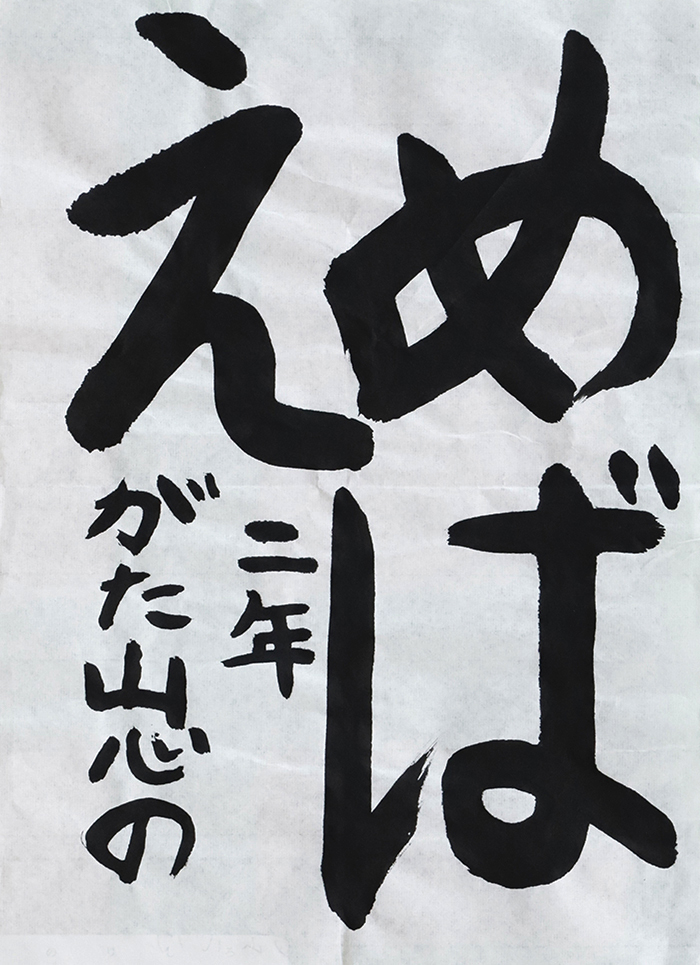 めば
え
二年
がた山心の